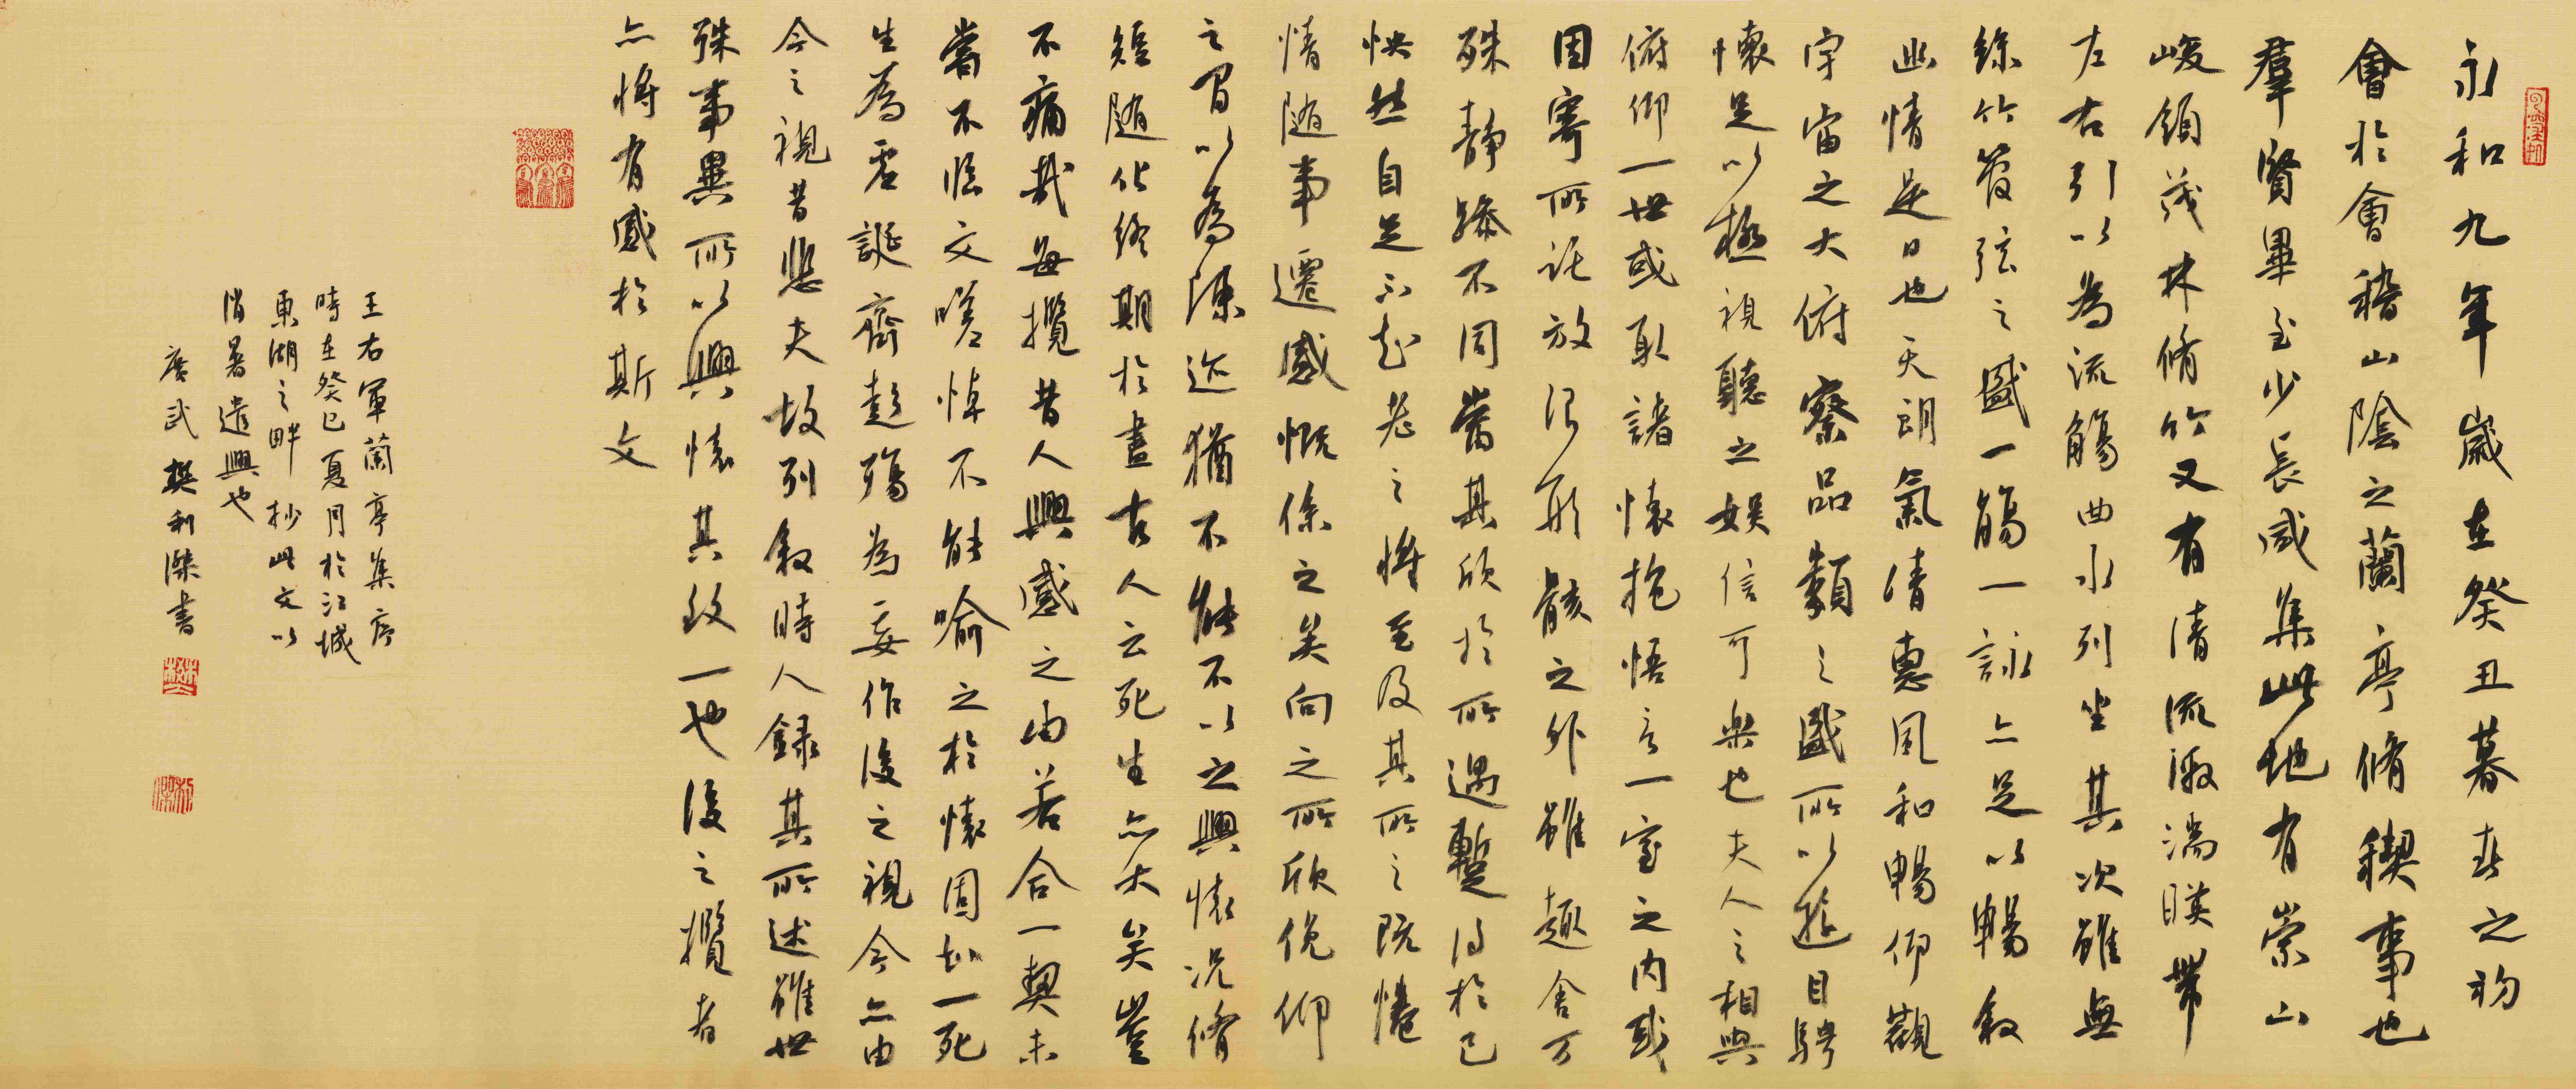 永和九年歲在癸丑暮春之初
會於會稽山陰之蘭亭脩稧事也
羣賢畢至少長咸集此地有崇山
峻領茂林脩竹又有清流激湍暎帶
左右引以為流觴曲水列坐其次雖無
絲竹管弦之盛一觴一詠亦足以暢敘
幽情是日也天朗氣清惠風和暢仰觀
宇宙之大俯察品類之盛所以遊目騁
懷足以極視聽之娛信可樂也夫人之相與
俯仰一世或取諸懷抱悟言一室之內或
因寄所託放浪形骸之外雖趣舍万
殊靜躁不同當其欣於所遇暫得於己
怏然自足不知老之將至及其所之既惓
情隨事遷感慨係之矣向之所欣俛仰
之間以為陳迹猶不能不以之興懷況脩
短隨化終期於盡古人云死生亦大矣豈
不痛哉每攬昔人興感之由若合一契未
嘗不臨文嗟悼不能喻之於懷固知一死
生為虛誕齊彭殤為妄作後之視今亦由
今之視昔悲夫故列敘時人錄其所述雖世
殊事異所以興懷其致一也後之攬者
亦將有感於斯文
王右軍蘭亭集序
時在癸巳夏月於江城
東湖之畔抄此文以
消暑遣興也
唐武樊利傑書